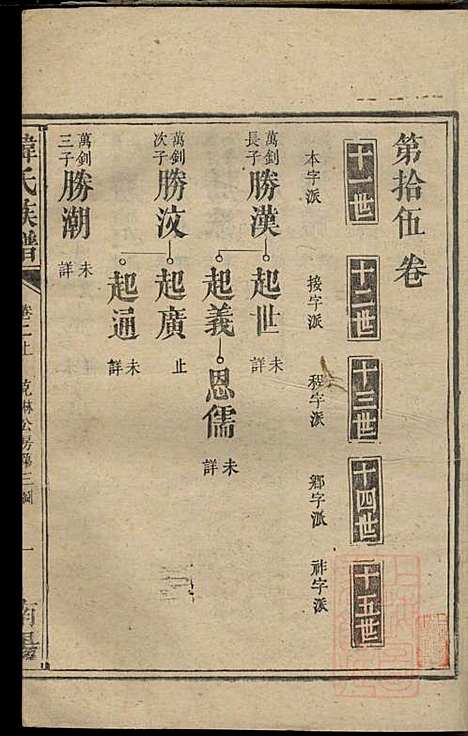 第拾伍卷
十一世 十二世 十三世 十四世 十五世
本字派 接字派 程字派 鄉字派 祚字派
萬釗長子 勝漢 起世 未詳
起義 恩儒 未詳
萬釗次子 勝汶 起廣 止
起通 未詳
萬釗三子 勝潮 未詳
韓氏族譜 卷二上 乾淋公房第三綱 一